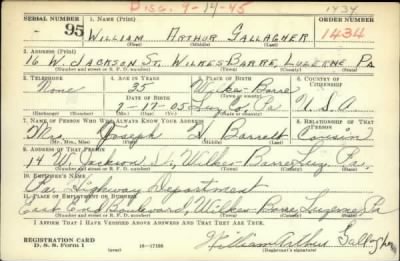 Disc. 9-14-45
1434
SERIAL NUMBER 1. NAME (Print) ORDER NUMBER
95 WILLIAM ARTHUR GALLAGHER 1434
(First) (Middle) (Last)
2. ADDRESS (Print)
16 W. JACKSON ST. WILKES-BARRE, LUZERNE PA
(Number and street or R. F. D. number) (Town) (County) (State)
3. TELEPHONE 4. AGE IN YEARS 5. PLACE OF BIRTH 6. COUNTRY OF CITIZENSHIP
None 35 Wilkes-Barre
DATE OF BIRTH (Town or county)
Luz. Co., Pa. U.S.A.
(Mo.) (Day) (Yr.) (State or country)
7. NAME OF PERSON WHO WILL ALWAYS KNOW YOUR ADDRESS 8. RELATIONSHIP OF THAT PERSON
Mr. Joseph Barrett Cousin
(Mr., Mrs., Miss) (First) (Middle) (Last)
9. ADDRESS OF THAT PERSON
14 W. Jackson St., Wilkes-Barre Luz. Pa.
(Number and street or R. F. D. number) (Town) (County) (State)
10. EMPLOYER'S NAME
Pa. Highway Department
11. PLACE OF EMPLOYMENT OR BUSINESS
East End Boulevard, Wilkes-Barre Luzerne Pa
(Number and street or R. F. D. number) (Town) (County) (State)
I AFFIRM THAT I HAVE VERIFIED ABOVE ANSWERS AND THAT THEY ARE TRUE.
REGISTRATION CARD
D. S. S. Form 1 16-17105 William Arthur Gallagher
(Registrant's signature)